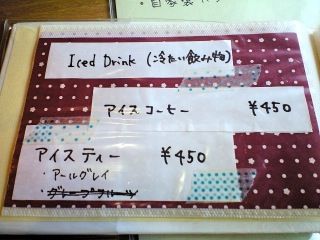 ・自家製
Iced Drink (冷たい飲み物)
アイスコーヒー ¥450
アイスティー ¥450
・アールグレイ
・グレープフルーツ